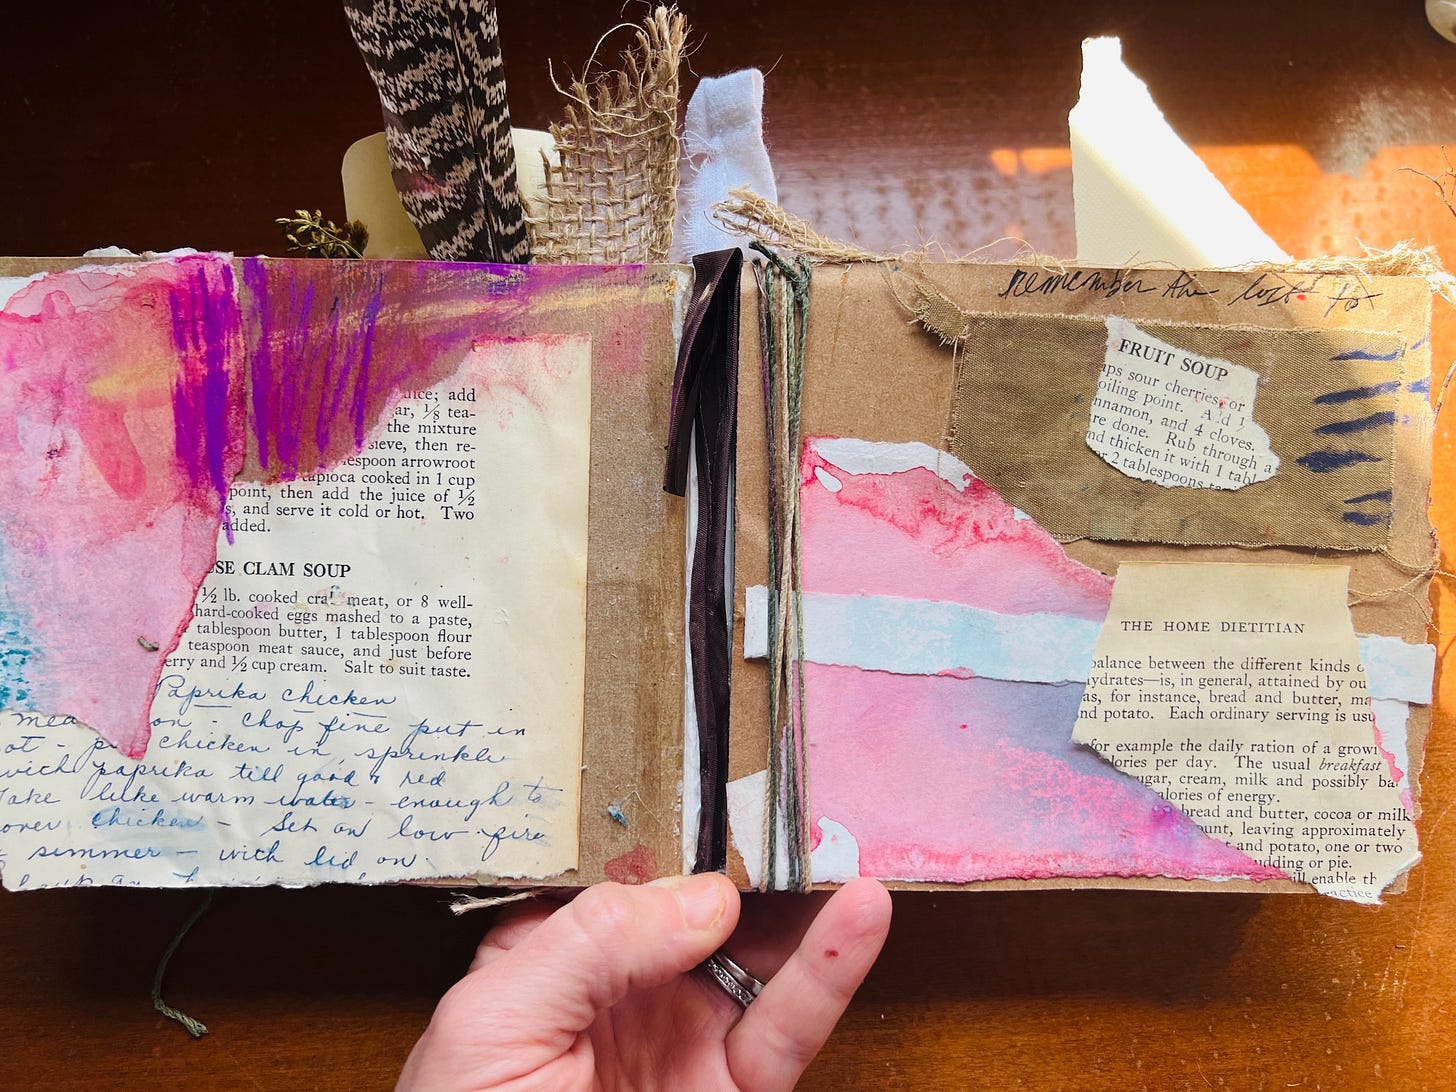 uice; add
ar, ⅛ tea-
the mixture
sieve, then re-
lespoon arrowroot
tapioca cooked in 1 cup
point, then add the juice of ½
s, and serve it cold or hot. Two
added.
SE CLAM SOUP
½ lb. cooked crab meat, or 8 well-
hard-cooked eggs mashed to a paste,
tablespoon butter, 1 tablespoon flour
teaspoon meat sauce, and just before
erry and ½ cup cream. Salt to suit taste.
Paprika chicken
mea on - chop fine put in
ot - chicken in sprinkle
with paprika till good & red
Take luke warm water - enough to
over chicken - Set on low fire
simmer - with lid on
remember the to
FRUIT SOUP
aps sour cherries, or
oiling point. Add 1
nnamon, and 4 cloves.
re done. Rub through a
nd thicken it with 1 tabl
r 2 tablespoons
THE HOME DIETITIAN
balance between the different kinds o
ydrates—is, in general, attained by ou
as, for instance, bread and butter, ma
nd potato. Each ordinary serving is usu
for example the daily ration of a growi
lories per day. The usual breakfast
ugar, cream, milk and possibly ba
alories of energy.
bread and butter, cocoa or milk
unt, leaving approximately
t and potato, one or two
udding or pie.
ill enable th
ractice